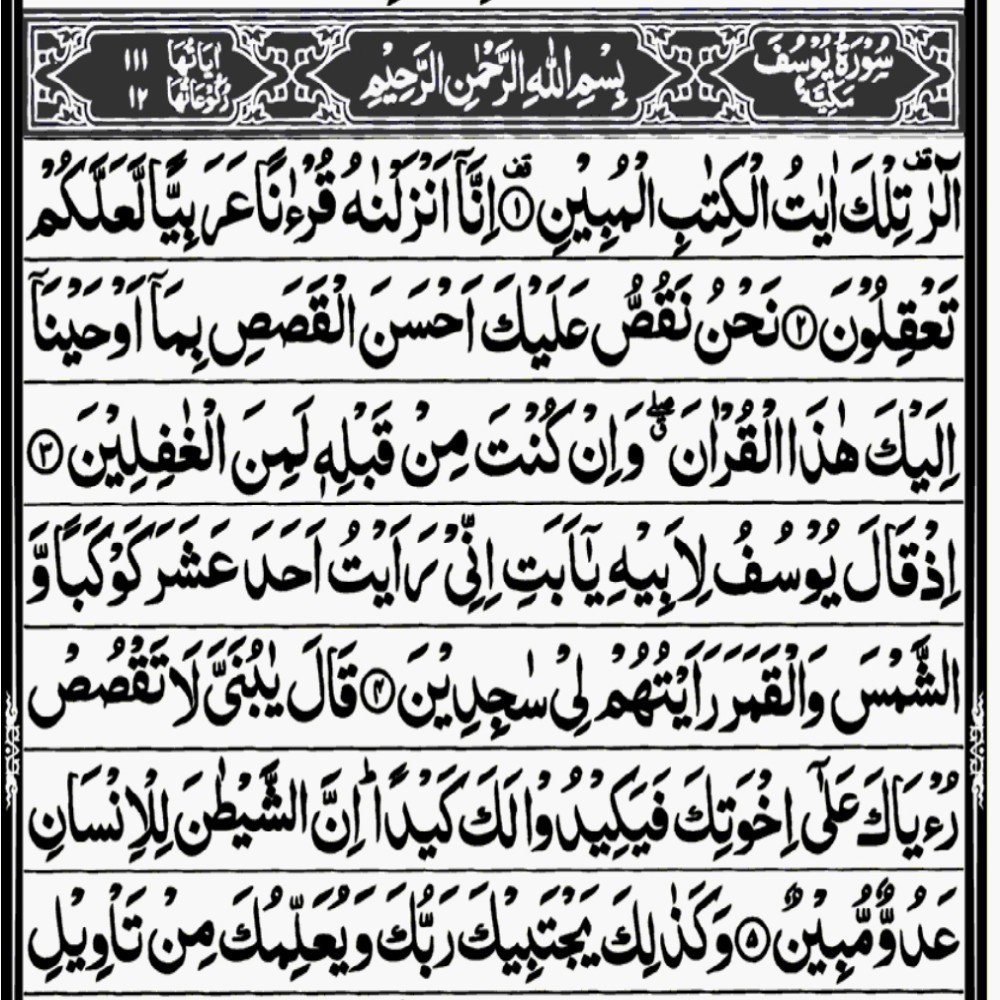 سُوْرَةُ يُوْسُفَ مَكِّيَّةٌ بِسْمِ اللّٰهِ الرَّحْمٰنِ الرَّحِيْمِ اٰيَاتُهَا ١١١ رُكُوْعَاتُهَا ١٢
الٓرٰ ۟ تِلْكَ اٰيٰتُ الْكِتٰبِ الْمُبِيْنِ ۟ ﴿۱﴾ اِنَّاۤ اَنْزَلْنٰهُ قُرْءٰنًا عَرَبِيًّا لَّعَلَّكُمْ
تَعْقِلُوْنَ ﴿۲﴾ نَحْنُ نَقُصُّ عَلَيْكَ اَحْسَنَ الْقَصَصِ بِمَاۤ اَوْحَيْنَاۤ
اِلَيْكَ هٰذَا الْقُرْاٰنَ ۖۗ وَاِنْ كُنْتَ مِنْ قَبْلِهٖ لَمِنَ الْغٰفِلِيْنَ ﴿۳﴾
اِذْ قَالَ يُوْسُفُ لِاَبِيْهِ يٰۤاَبَتِ اِنِّيْ رَاَيْتُ اَحَدَ عَشَرَ كَوْكَبًا وَّ
الشَّمْسَ وَالْقَمَرَ رَاَيْتُهُمْ لِيْ سٰجِدِيْنَ ﴿۴﴾ قَالَ يٰبُنَيَّ لَا تَقْصُصْ
رُءْيَاكَ عَلٰۤى اِخْوَتِكَ فَيَكِيْدُوْا لَكَ كَيْدًا ؕ اِنَّ الشَّيْطٰنَ لِلْاِنْسَانِ
عَدُوٌّ مُّبِيْنٌ ﴿۵﴾ وَكَذٰلِكَ يَجْتَبِيْكَ رَبُّكَ وَيُعَلِّمُكَ مِنْ تَاْوِيْلِ